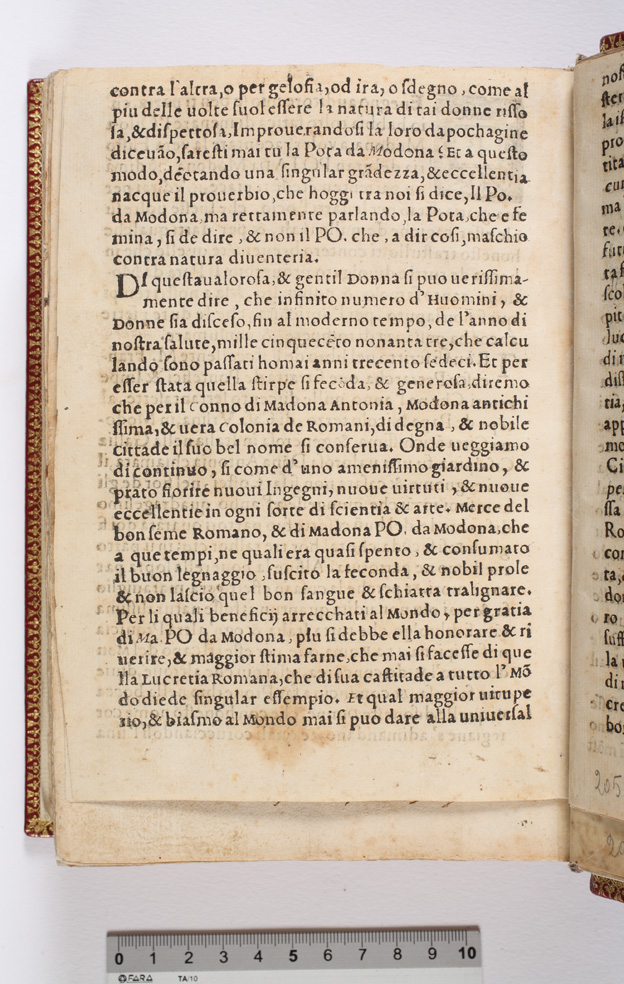 contra l'altra, o per gelosia, od ira, o sdegno, come al
piu delle uolte suol essere la natura di tai donne risso
sa, &dispettosa. Improuerandosi la loro dapochagine
diceuāo, saresti mai tu la Pota da Modona? Et a questo
modo, dēotando una singular grādezza, &eccellentia
nacque il prouerbio, che hoggi tra noi si dice, Il Po.
da Modona, ma rettamente parlando, la Pota, che e fe
mina, si de dire, & non il PO. che, a dir cosi, maschio
contra natura diuenteria.
DI questa ualorosa, & gentil Donna si puo uerissima-
mente dire, che infinito numero d'Huomini, &
Donne sia disceso, fin al moderno tempo, de l'anno di
nostra salute, mille cinquecēto nonanta tre, che calcu
lando sono passati homai anni trecento sedeci. Et per
esser stata quella stirpe si fecōda, & generosa, diremo
che per il Conno di Madona Antonia, Modona antichi
ssima, & uera Colonia de Romani, di degna, & nobile
cittade il suo bel nome si conserua. Onde ueggiamo
di continuo, si come d'uno amenissimo giardino, &
prato fiorire nuoui Ingegni, nuoue uirtuti, & nuoue
eccellentie in ogni sorte di scientia & arte. Merce del
bon seme Romano, & di Madona PO. da Modona, che
a que tempi, ne quali era quasi spento, & consumato
il buon legnaggio, suscito la feconda, & nobil prole
& non lascio quel bon sangue & schiatta tralignare.
Per li quali beneficij arrecchati al Mondo, per gratia
di Ma. PO da Modona, piu si debbe ella honorare & ri
uerire, & maggior stima farne, che mai si facesse di que
lla Lucretia Romana, che di sua castitade a tutto l'Mō
do diede singular essempio. Et qual maggior uitupe
rio, & biasmo al Mondo mai si puo dare alla uniuersal
205
0 1 2 3 4 5 6 7 8 9 10
FARA TA/10